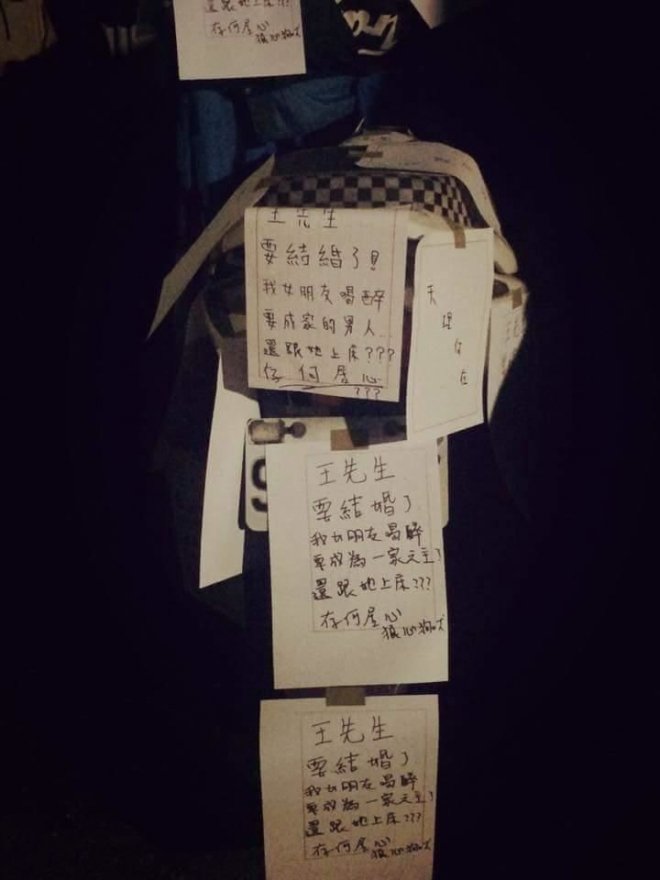 還跟她上床???
存何居心
狼心狗吠
王先生
要結婚了!
我女朋友喝醉
要成家的男人
還跟她上床???
存何居心
???
天理何在
王先生
要結婚了
我女朋友喝醉
要成為一家之主?
還跟她上床???
存何居心
狼心狗吠
王先生
要結婚了
我女朋友喝醉
要成為一家之主?
還跟她上床???
存何居心
狼心狗吠